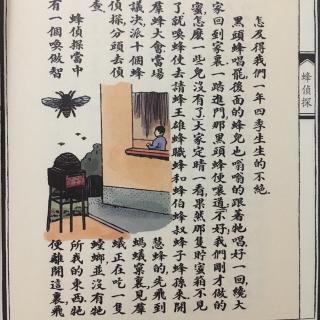 蜂偵探
怎及得我們一年四季生生的不絕
黑頭蜂唱罷後面的蜂兒也嗡嗡的跟著牠唱好一回繞大
家回到家裏一踏進門那黑頭蜂便嚷道不好我們剛才做的
蜜怎麼一些兒沒有了大家定睛一看果然那隻貯蜜箱不見
了就喚蜂使去請蜂王雄蜂職蜂和蜂伯蜂叔蜂子蜂孫來開
羣蜂大會當場
議決派十個蜂
偵探分頭去偵
查
蜂偵探當中
有一個喚做智
慧蜂的先飛到
螞蟻窠裏見羣
蟻正在吃一隻
螳螂並沒有牠
所我的東西牠
便離開這裏飛